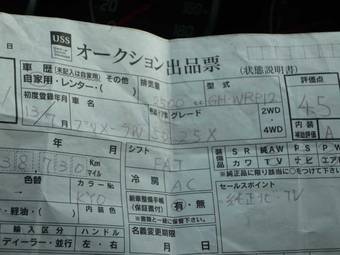 USS オークション出品票
(状態説明書)
車歴(未記入は自家用) その他
自家用・レンタ・(
排気量
型式
評価点
初度登録年月
車名
2500 cc
GH-WRP12
グレード
2WD・
4WD
4.5
13/
プリメーラW
25X
内装
補助評価
A
年
月
シフト
SR 純AW P.S P.W
FAT
サン カワ TV ナビ エア
38730 Km
マイル
※純正品に限り該当に○をつけて下さい
色替
カラーNo
冷房
AC
セールスポイント
KY0
純正ナビ・TV
内装色
新車整備手帳
(保証書付)
有・無
・軽油・(
※書類と一緒に保管して下さい
輸入区分
ハンドル
名義変更期限
ディーラー・並行
右・左
月
日